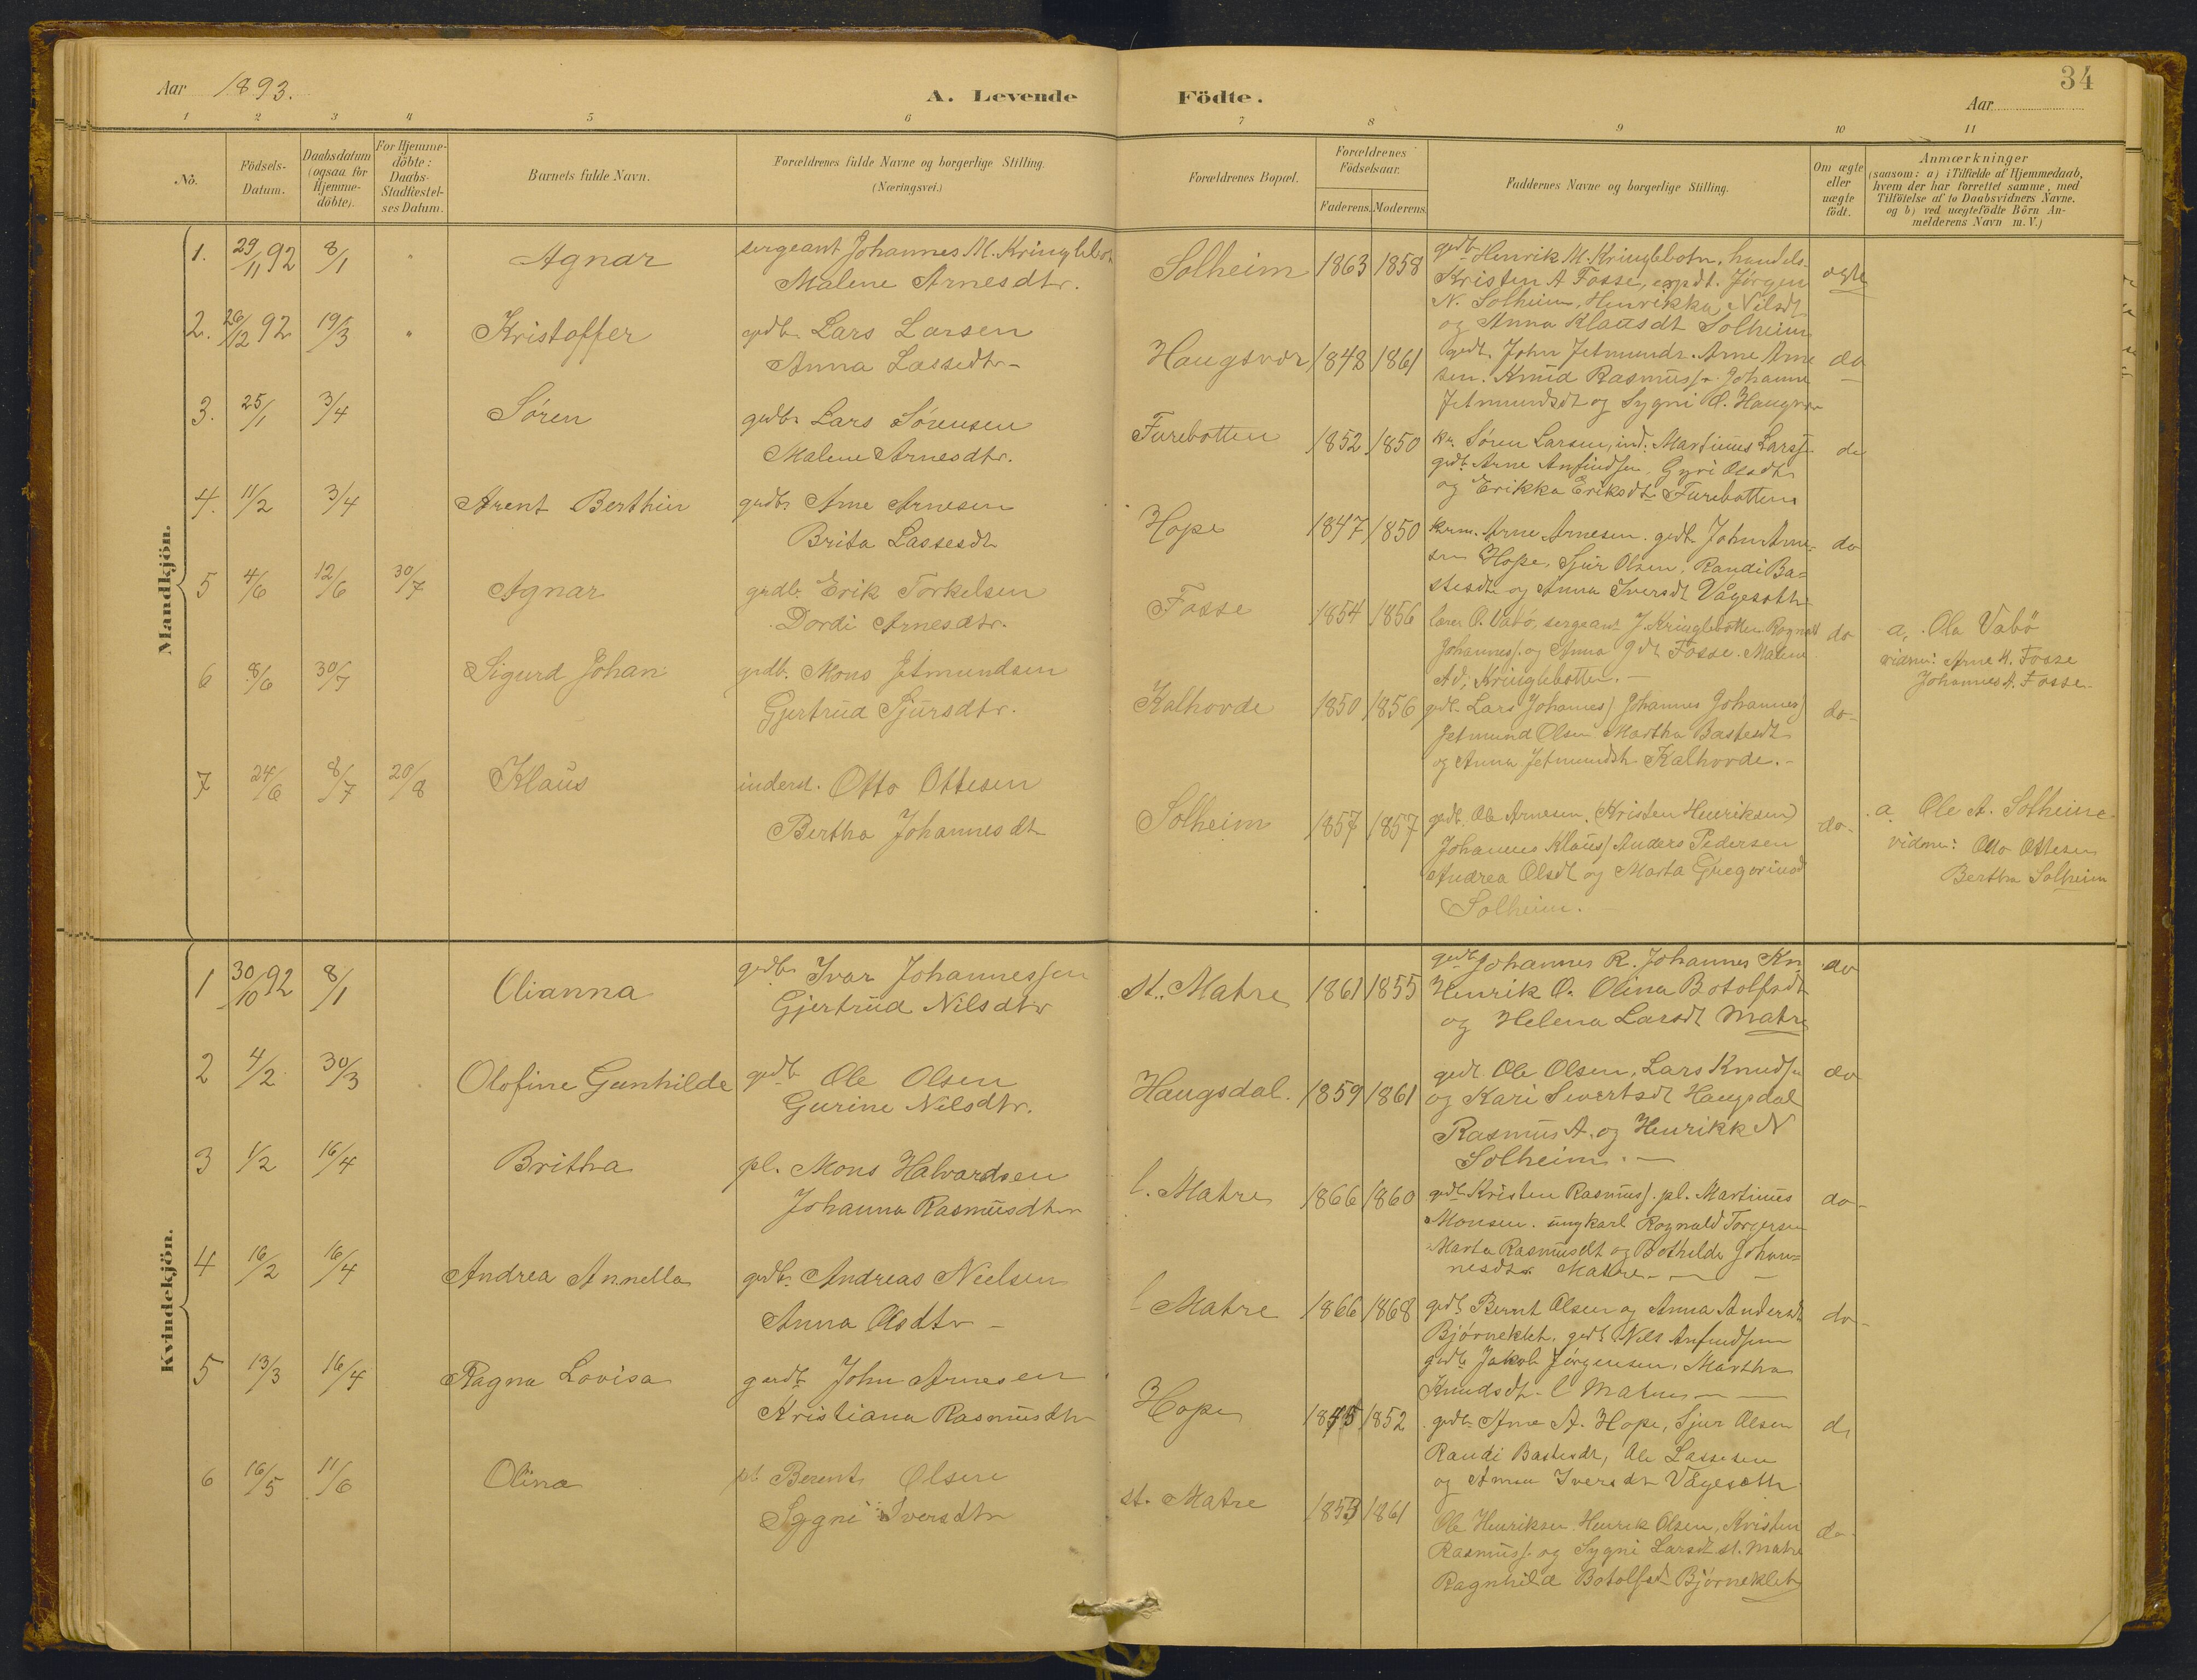 Aar 1893.
A. Levende Födte.
34
Aar
1 2 3 4 5 6 7 8 9 10 11
No.
Födsels-Datum.
Daabsdatum (ogsaa for Hjemme-döbte).
For Hjemme-döbte: Daabs-Stadfæstel-ses Datum.
Barnets fulde Navn.
Forældrenes fulde Navne og borgerlige Stilling.
(Næringsvei.)
Forældrenes Bopæl.
Forældrenes Födselsaar.
Faderens. Moderens.
Faddernes Navne og borgerlige Stilling.
Om ægte eller uægte födt.
Anmærkninger
(saasom: a) i Tilfælde af Hjemmedaab,
hvem der har forrettet samme, med
Tilföielse af to Daabsvidners Navne.
og b) ved uægtefödte Börn An-
melderens Navn m. V.)
Mandkjön.
1. 29/11 92 8/1 " Agnar
sergeant Johannes M. Kringlebot
Malene Arnesdtr.
Solheim 1863 1858
gdb. Henrik M. Kringlebotn, handels.
Kristen A Fosse, Jørgen
N. Solheim, Henrikka Nilsdt
og Anna Klausdt Solheim
ægte
2. 26/12 92 19/3 " Kristoffer
gdbr. Lars Larsen
Anna Lassedtr-
Haugsvær 1848 1861
gdb. John Jetmunds. Arne Arne
sen. Knud Rasmuss. Johanne
Jetmundsdt og Sygni O. Haugsvær
do
3. 25/1 3/4 Sören
gdbr. Lars Sörensen
Malene Arnesdtr.
Furebotten 1852 1850
kr. Sören Larsen, ind. Martinus Larss.
gdb. Arne Anfindsen, Gyri Olsdtr
og Erikka Eriksdt Furebotten
do
4. 11/2 3/4 Arent Berthin
gdbr Arne Arnesen
Brita Lassesdt
Hope 1847 1850
krm. Arne Arnesen. gdb. John Arne-
sen Hope, Sjur Olsen, Randi Ba-
stesdt og Anna Iversdt Vågesæth
do
5 4/6 12/6 30/7 Agnar
gdb. Erik Torkelsen
Dordi Arnesdtr.
Fosse 1854 1856
lærer O. Vabö, sergeant J. Kringlebotten Rognald
Johanness. og Anna Fosse. Malene
Ad. Kringlebotten.-
do
a, Ola Vabö
vidner: Arne H. Fosse
Johannes A. Fosse.
6 8/6 30/7 Sigurd Johan
gdb. Mons Jetmundsen
Gjertrud Sjursdtr.
Kalhovde 1850 1856
gdb. Lars Johaness. Johannes Johanness.
Jetmund Olsen Martha Bastesdt
og Anna Jetmundsdt Kalhovde.-
do-
7 24/6 8/7 20/8 Klaus
inderst. Otto Ottesen
Bertha Johannesdt
Solheim 1857 1857
gdb. Ole Arnesen. (Kristen Henriksen)
Johannes Klauss. Anders Pedersen
Andrea Olsdt og Marta Gregoriusd
Solheim.-
do-
a, Ole A. Solheim
vidner: Otto Ottesen
Bertha Solheim
Kvindekjön.
1 30/10 92 8/1 Olianna
gdbr Ivar Johannessen
Gjertrud Nilsdtr
st. Matre 1861 1855
gdb. Johannes R. Johannes Kn.
Henrik O. Olina Botolfsdt
og Helena Larsdt Matre
do
2 4/2 30/3 Olofine Gunhilde
gdb Ole Olsen
Gurine Nilsdtr.
Haugsdal. 1859 1861
gdb. Ole Olsen, Lars Knuds.
og Kari Sivertsdt Haugsdal
Rasmus A. og Henrikk N
Solheim.-
do
3 1/2 16/4 Britha
pl. Mons Halvardsen
Johanna Rasmusdtr
l. Matre 1866 1860
gdb. Kristen Rasmuss. pl. Martinus
Monsen. ungkarl Rognald Torgersen
Marta Rasmusdt og Bothilde Johan-
nesdtr Matre-
do-
4 16/2 16/4 Andrea Annella
gdb. Andreas Nielsen
Anna Olsdtr-
l Matre 1866 1868
gdb. Bernt Olsen og Anna Andersdt
Bjørneklet, gdb. Nils Anfindsen
gdb. Jakob Jørgensen, Martha
Knudsdt. l Matre
do-
5 13/3 16/4 Ragna Lovisa
gdb. John Arnesen
Kristiana Rasmusdtr
Hope 1845 1852
gdb. Arne A. Hope, Sjur Olsen
Randi Bastesdt, Ole Lassesen
og Anna Iversdt Vågesæth
do
6 16/5 11/6 Olina
pl. Berent Olsen
Sygni Iversdtr
st. Matre 1853 1861
Ole Henriksen Henrik Olsen, Kristen
Rasmuss. og Sygni Larsdt st. Matre
Ragnhild Botolfsdt Bjørneklet
do-